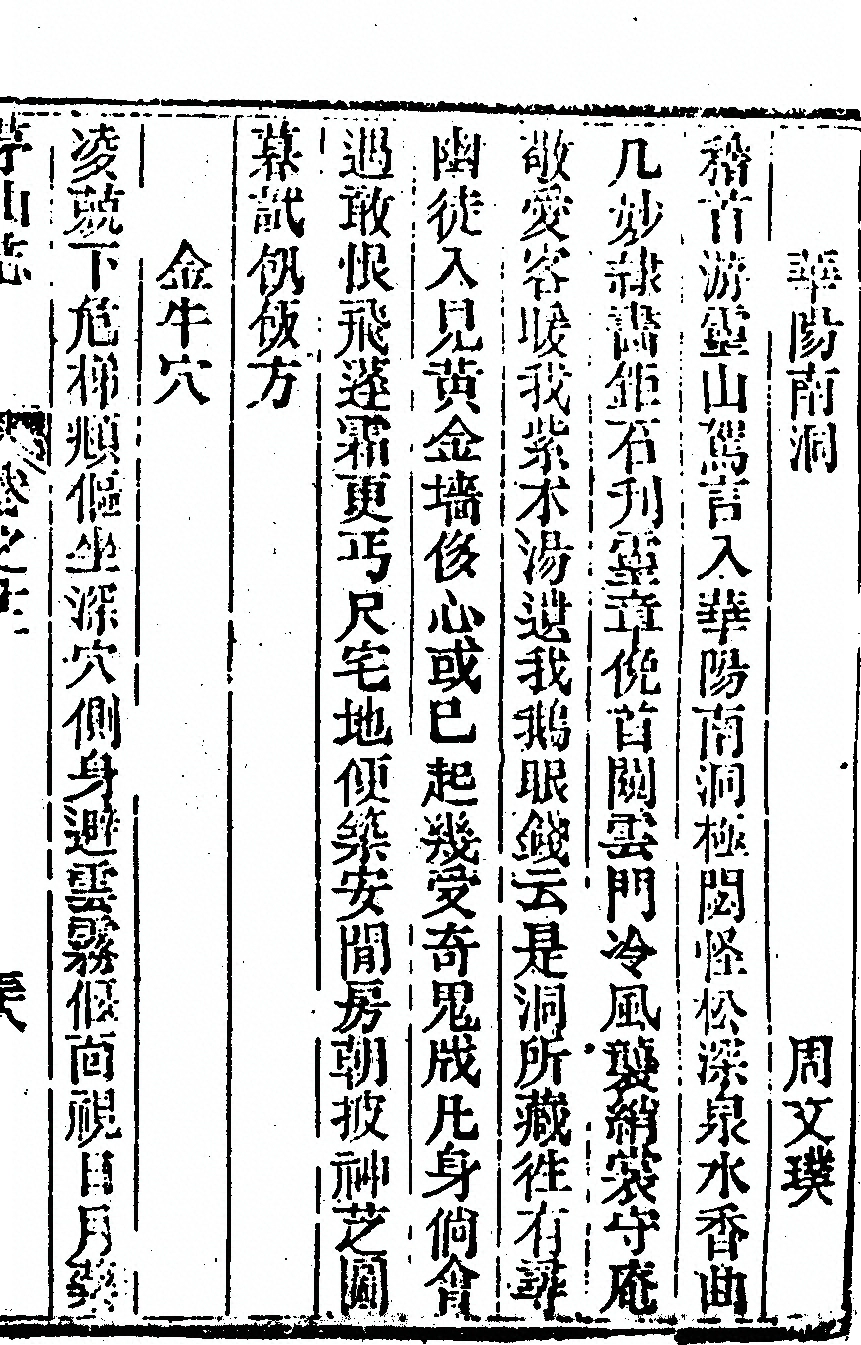 華陽南洞 周文璞
稽首游靈山駕言入華陽南洞極閎怪松深泉水香曲
几妙隷書鉅石刋靈章俛首闖雲門冷風襲綃裳守庵
敬愛客暖我紫术湯遺我鵝眼錢云是洞所藏徃有尋
幽徒入見黃金墻侈心或已起幾受奇鬼戕凡身倘會
遇敢恨飛蓬霜更丐尺宅地便築安閒房朝披神芝圖
暮試飢飯方
金牛穴
凌兢下危梯傾傴坐深穴側身避雲霧偃面視日月
茅山志 卷之